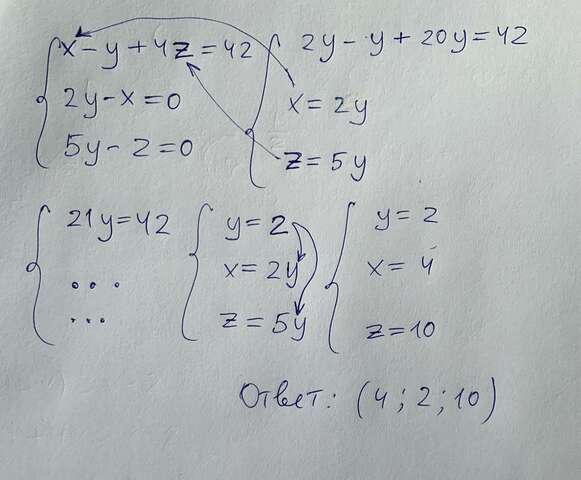 x - y + 4z = 42
2y - x = 0
5y - z = 0
2y - y + 20y = 42
x = 2y
z = 5y
21y = 42
...
...
y = 2
x = 2y
z = 5y
y = 2
x = 4
z = 10
Ответ: (4; 2; 10)